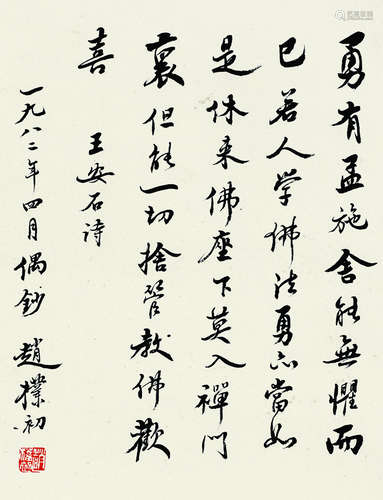 勇有孟施舍能無懼而
已若人学佛法勇亦當如
是休来佛座下莫入禪門
裏但能一切捨管教佛歡
喜
王安石诗
一九八二年四月偶鈔 趙樸初